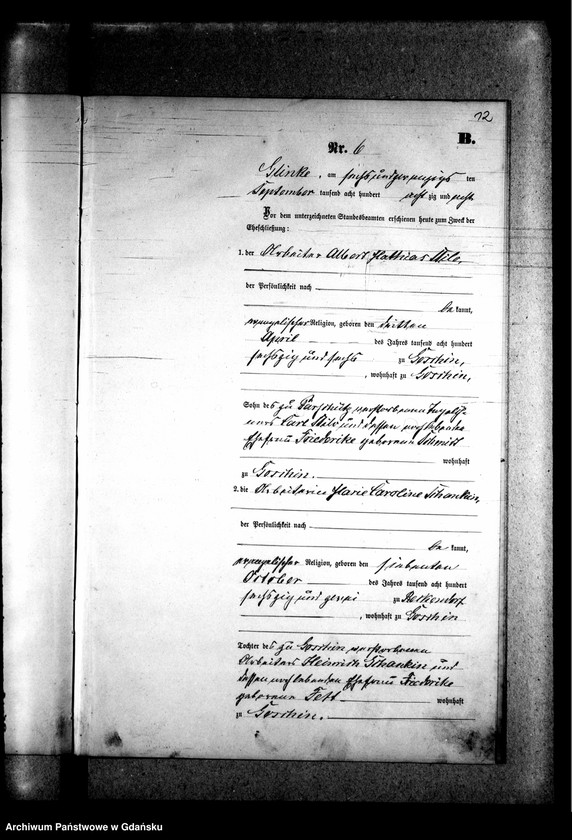 12
B.
Nr. 6
Glinke, am sechsundzwanzigsten
September tausend acht hundert achtzig und acht
Vor dem unterzeichneten Standesbeamten erschienen heute zum Zweck der
Eheschließung:
1. der Arbeiter Albert Mathias
der Persönlichkeit nach
be kannt,
evangelischer Religion, geboren den dritten
April des Jahres tausend acht hundert
sechszig und sechs zu Goschin,
, wohnhaft zu Goschin,
Sohn des zu verstorbenen
Carl und dessen noch lebenden
Ehefrau Friederike geborenen Schmidt
wohnhaft
zu Goschin.
2. die Arbeiterin Marie Caroline
der Persönlichkeit nach
be kannt,
evangelischer Religion, geboren den siebenten
October des Jahres tausend acht hundert
sechszig und zwei zu
, wohnhaft zu Goschin
Tochter des zu Goschin verstorbenen
Arbeiters Heinrich und
dessen noch lebenden Ehefrau Friederike
geborenen wohnhaft
zu Goschin.
Archiwum Państwowe w Gdańsku